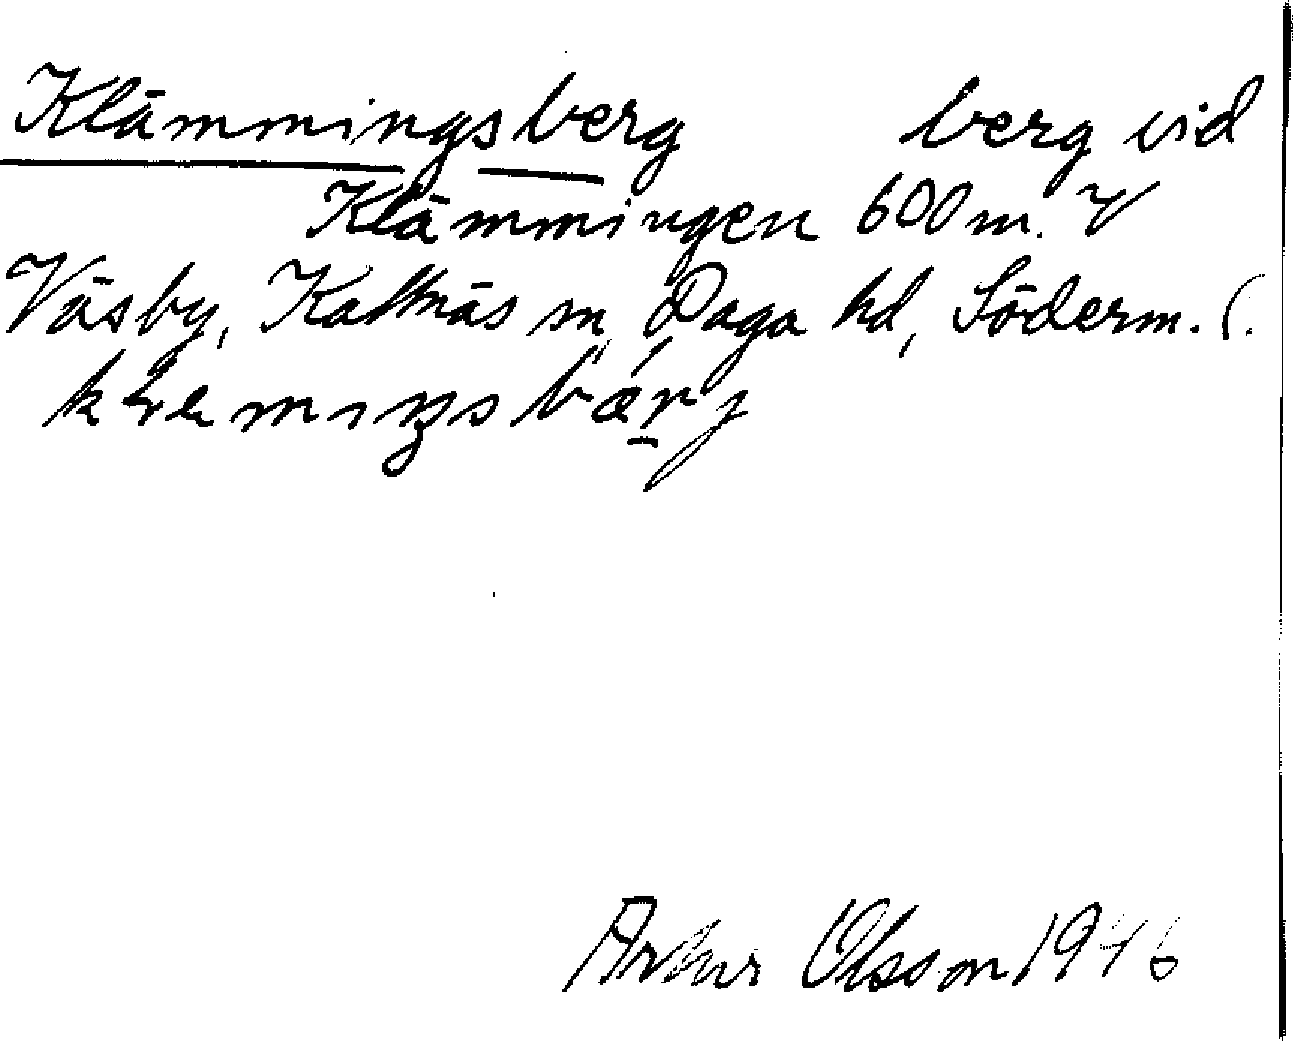 Klämmingsberg berg vid
Klämmingen 600 m. V
Väsby, Kattnäs sn Daga hd, Söderm. l.
Artur Olsson 1946